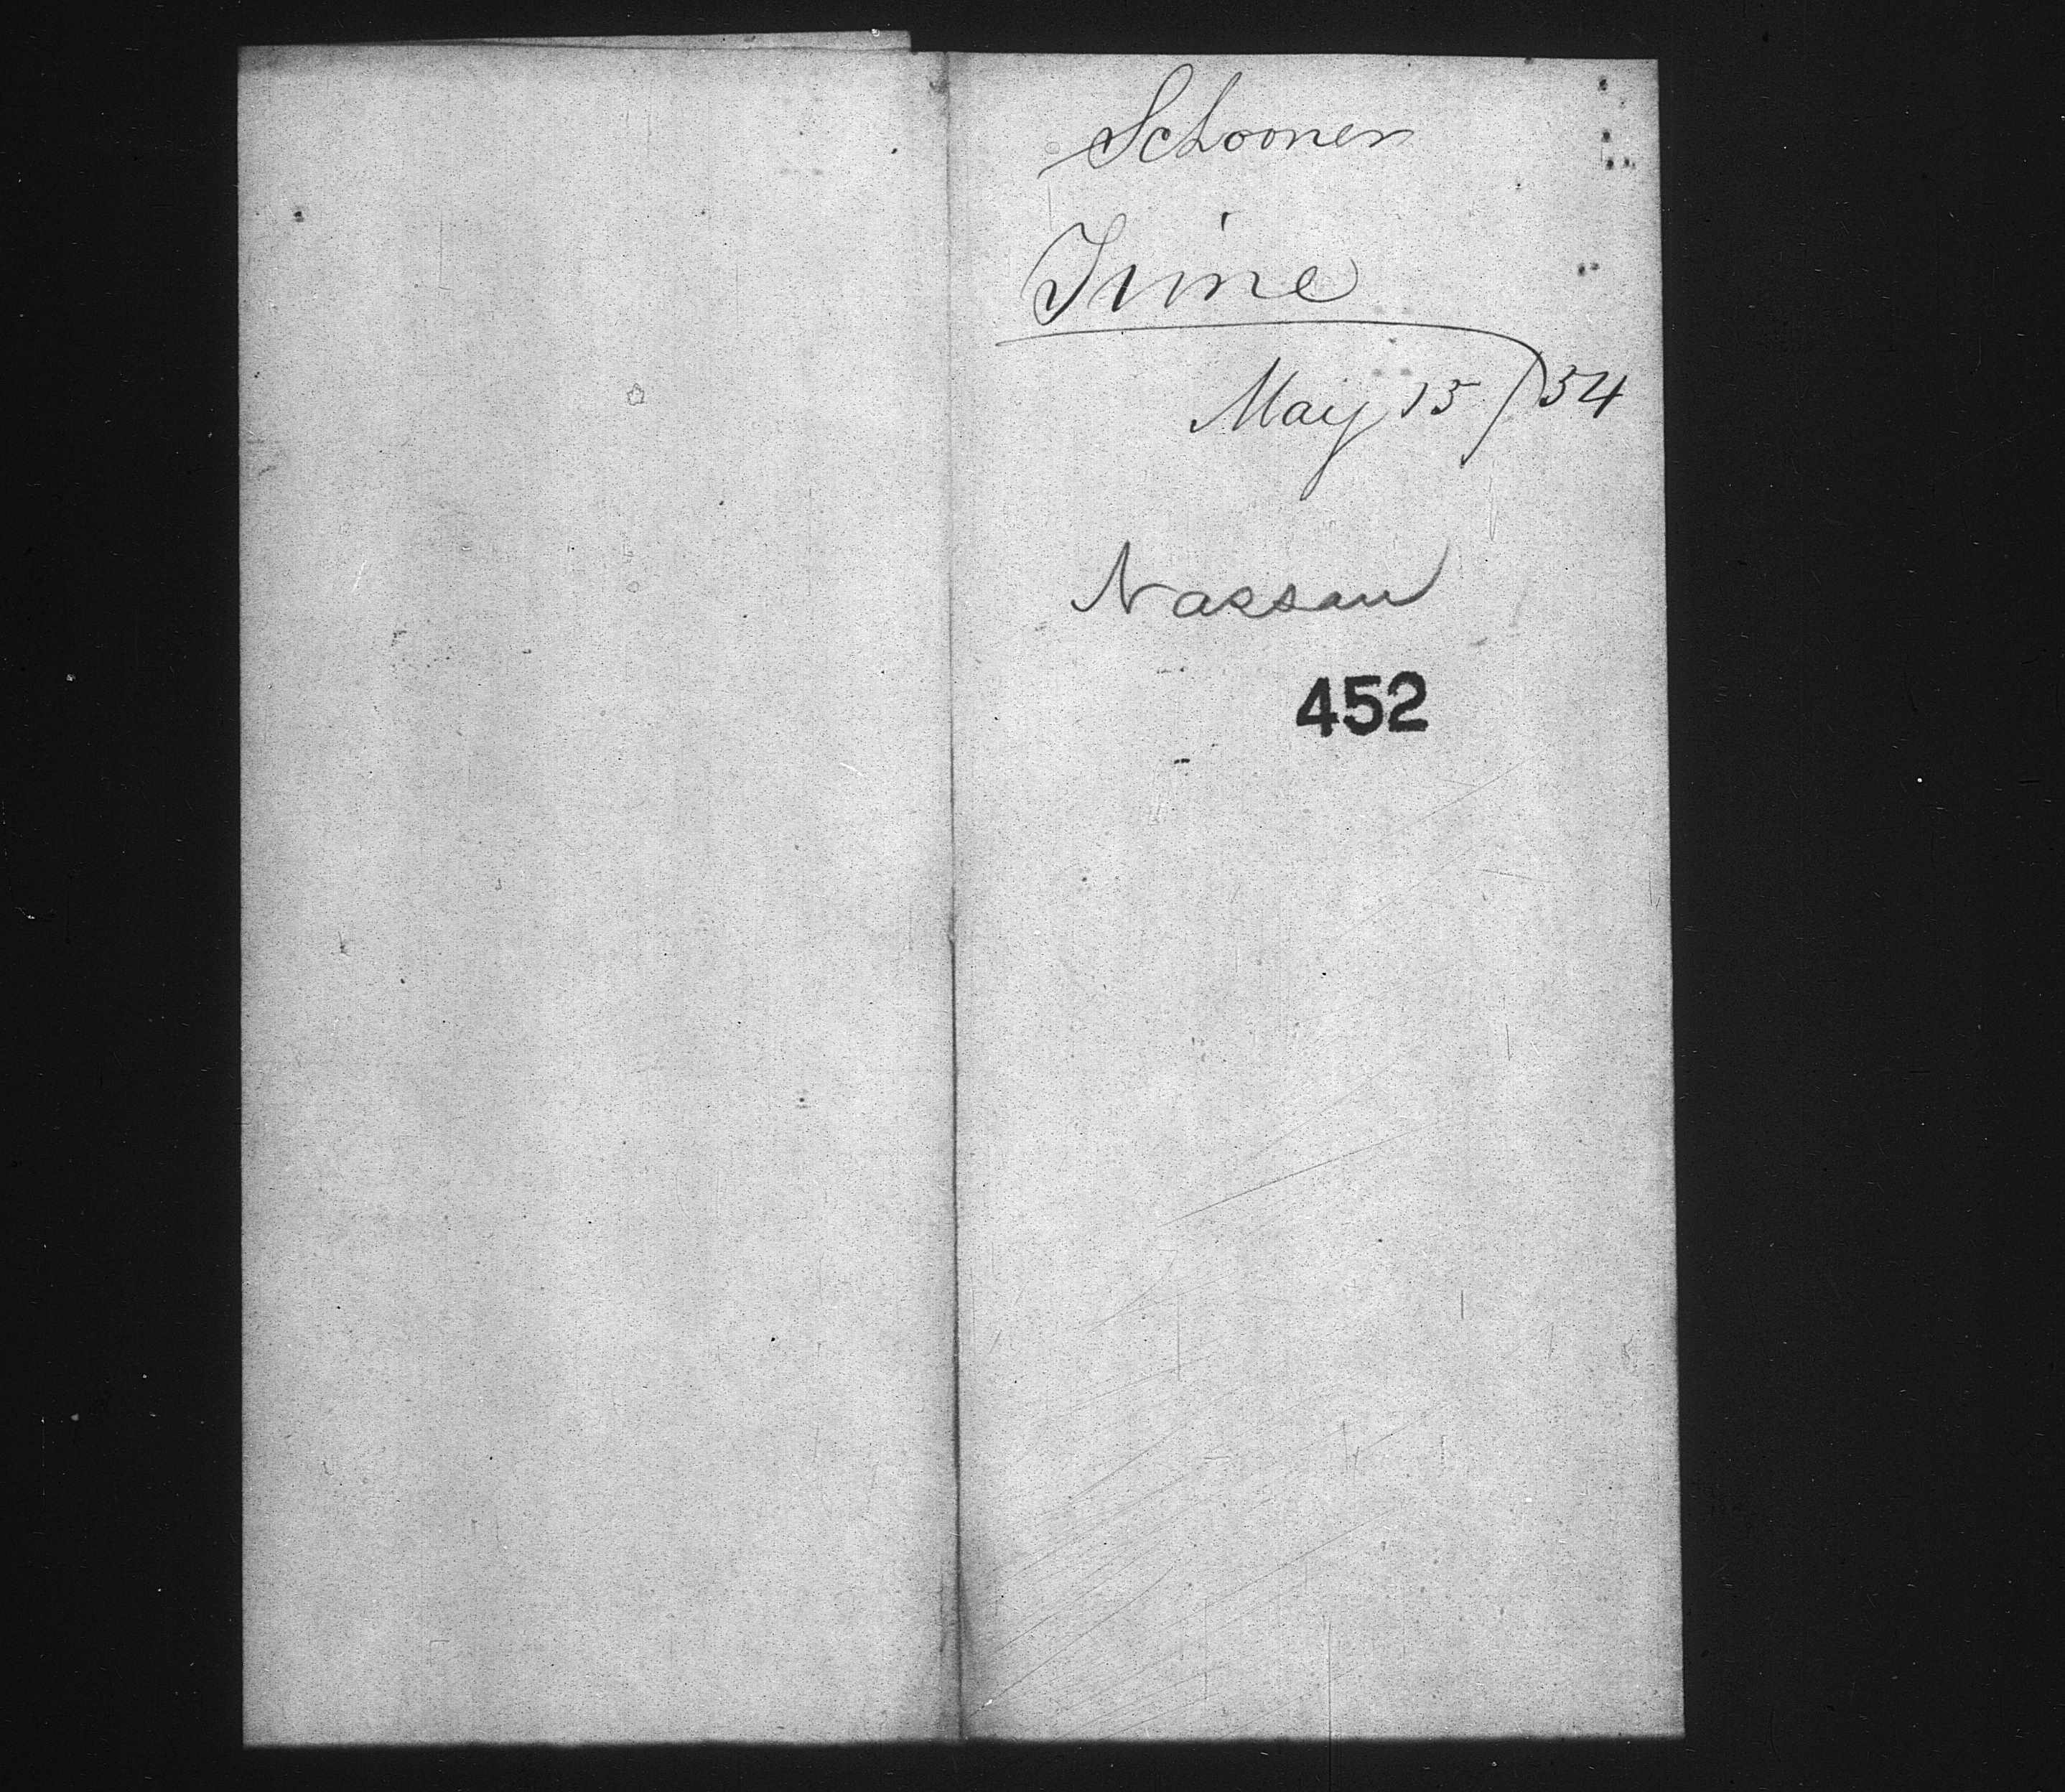 Schooner
May 15/54
Nassau
452